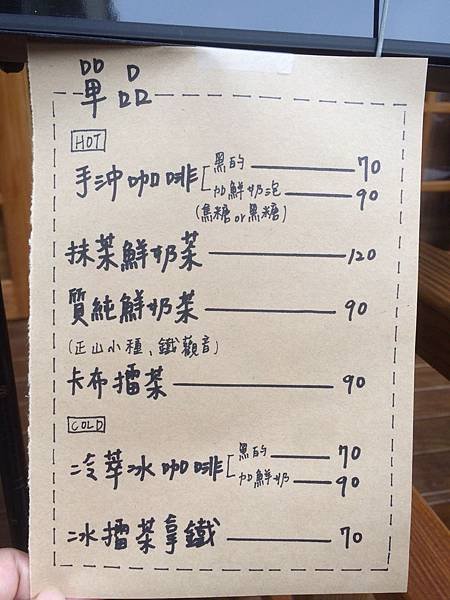 單品
HOT
手沖咖啡 黑的 70
加鮮奶泡 90
(焦糖or黑糖)
抹茶鮮奶茶 120
質純鮮奶茶 90
(正山小種、鐵觀音)
卡布擂茶 90
COLD
冷萃冰咖啡 黑的 70
加鮮奶 90
冰擂茶拿鐵 70